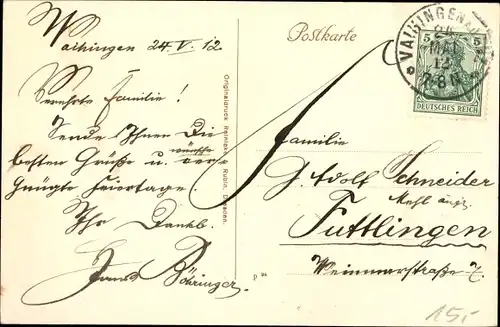 Waihingen 24 V. 12.
Verehrte Familie!
Sende Ihnen Die
besten Grüße u.
wünsche
gnügte Feiertage.
Ihr Dankb.
Böhringer
Originaldruck Reinicke & Rubin, Dresden.
Postkarte
VAIHINGEN
MAI
12
7-8 N
5 5
DEUTSCHES REICH
Familie
G. Adolf Schneider
Tuttlingen
Weimarstraße 7.
15,-